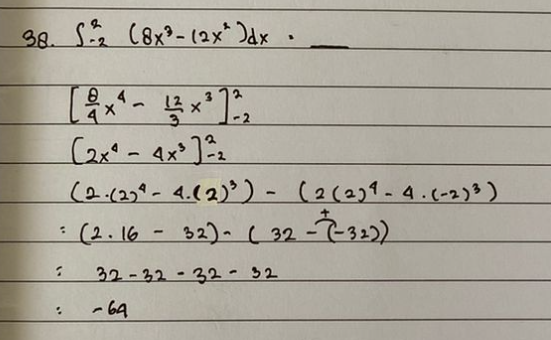 38. ∫₋₂² (8x³ - 12x²)dx = ___
[8/4 x⁴ - 12/3 x³]₋₂²
[2x⁴ - 4x³]₋₂²
(2.(2)⁴ - 4.(2)³) - (2(2)⁴ - 4.(-2)³)
= (2.16 - 32) - (32 - (-32)) +
= 32 - 32 - 32 - 32
= -64